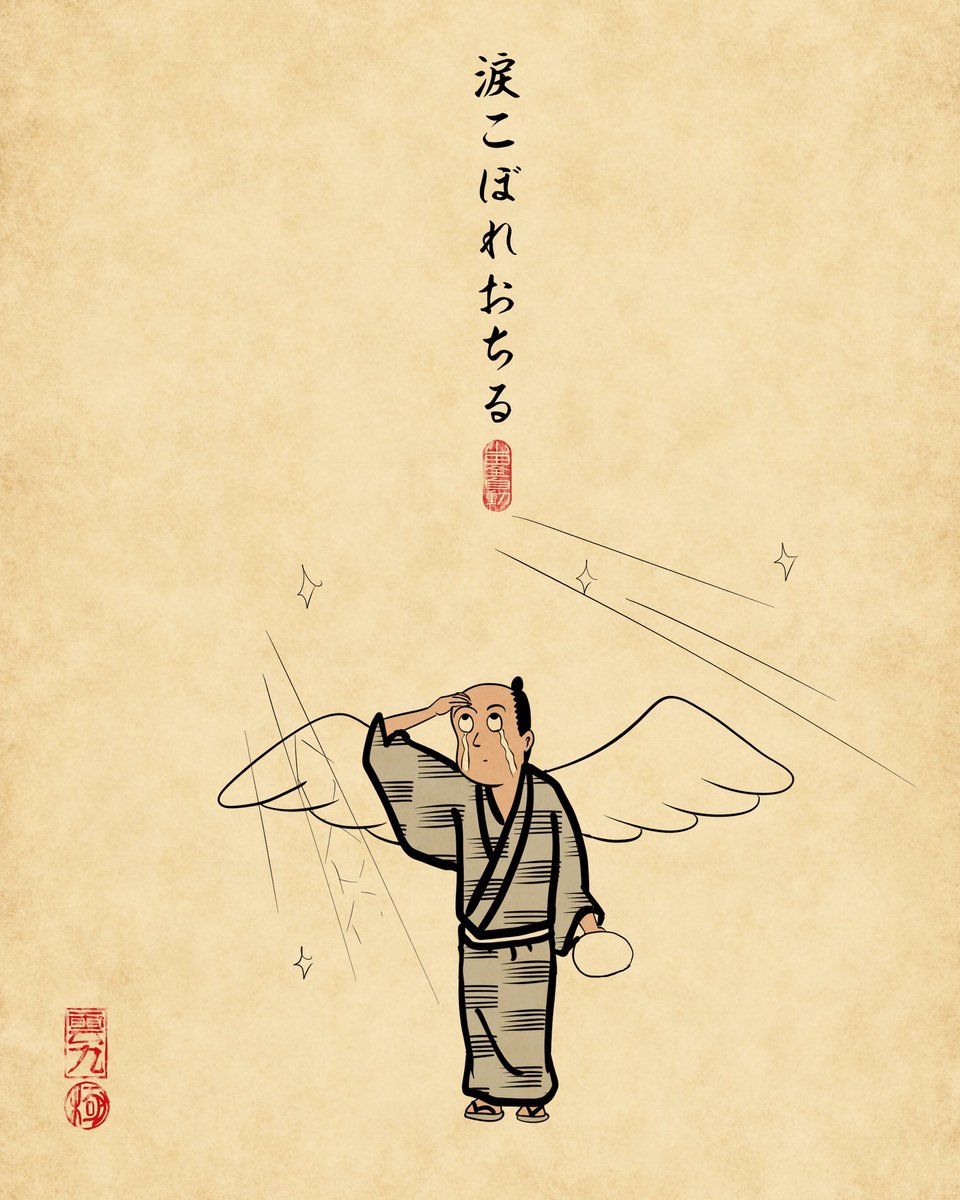 涙こぼれおちる
雲九
極